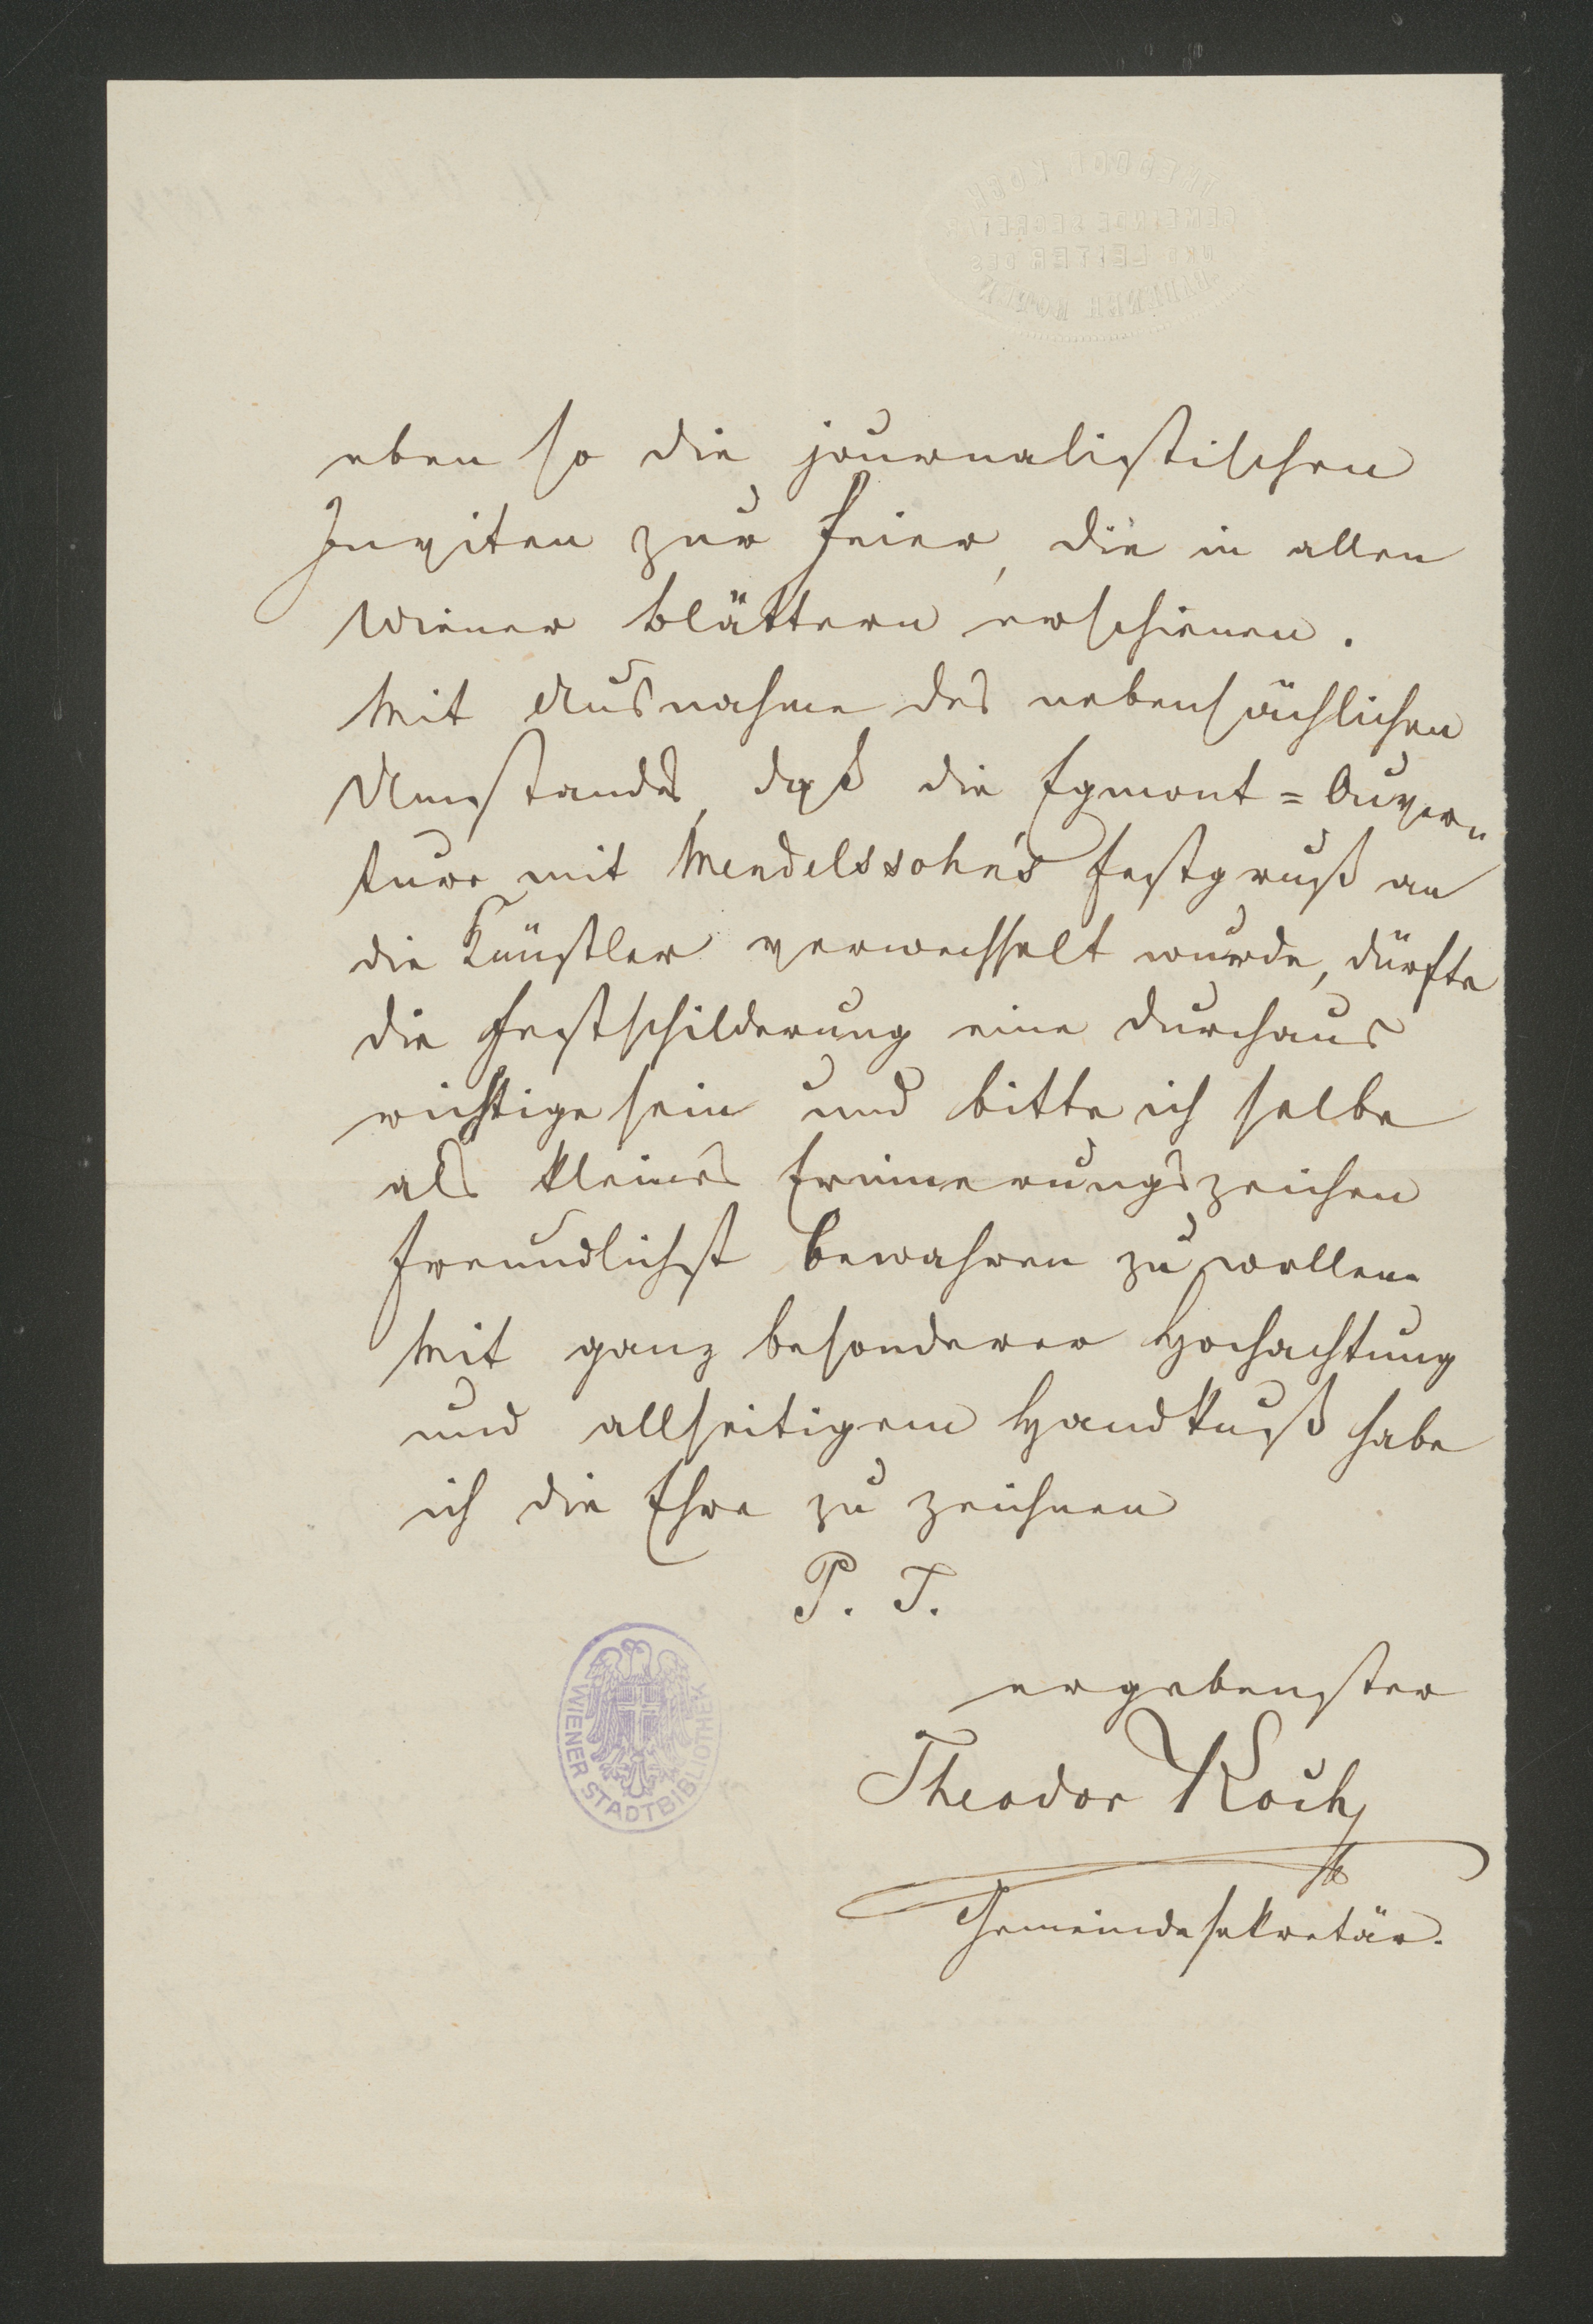 THEODOR KOCH
GEMEINDE SECRETÄR
UND LEITER DES
eben so die journalistischen
Inviten zur Feier, die in allen
Wiener Blättern erschienen.
Mit Ausnahme des nebensächlichen
Umstandes, daß die Egmont=Ouver„
ture mit Mendelssohn's Festgruß an
die Künstler verwechselt wurde, dürfte
die Festschilderung eine durchaus
richtige sein und bitte ich selbe
als kleines Erinnerungszeichen
freundlichst bewahren zu wollen.
Mit ganz besonderer Hochachtung
und allseitigem Handkuß habe
ich die Ehre zu zeichnen
P. T.
ergebenster
Theodor Koch
Gemeindesekretär.
WIENER STADTBIBLIOTHEK